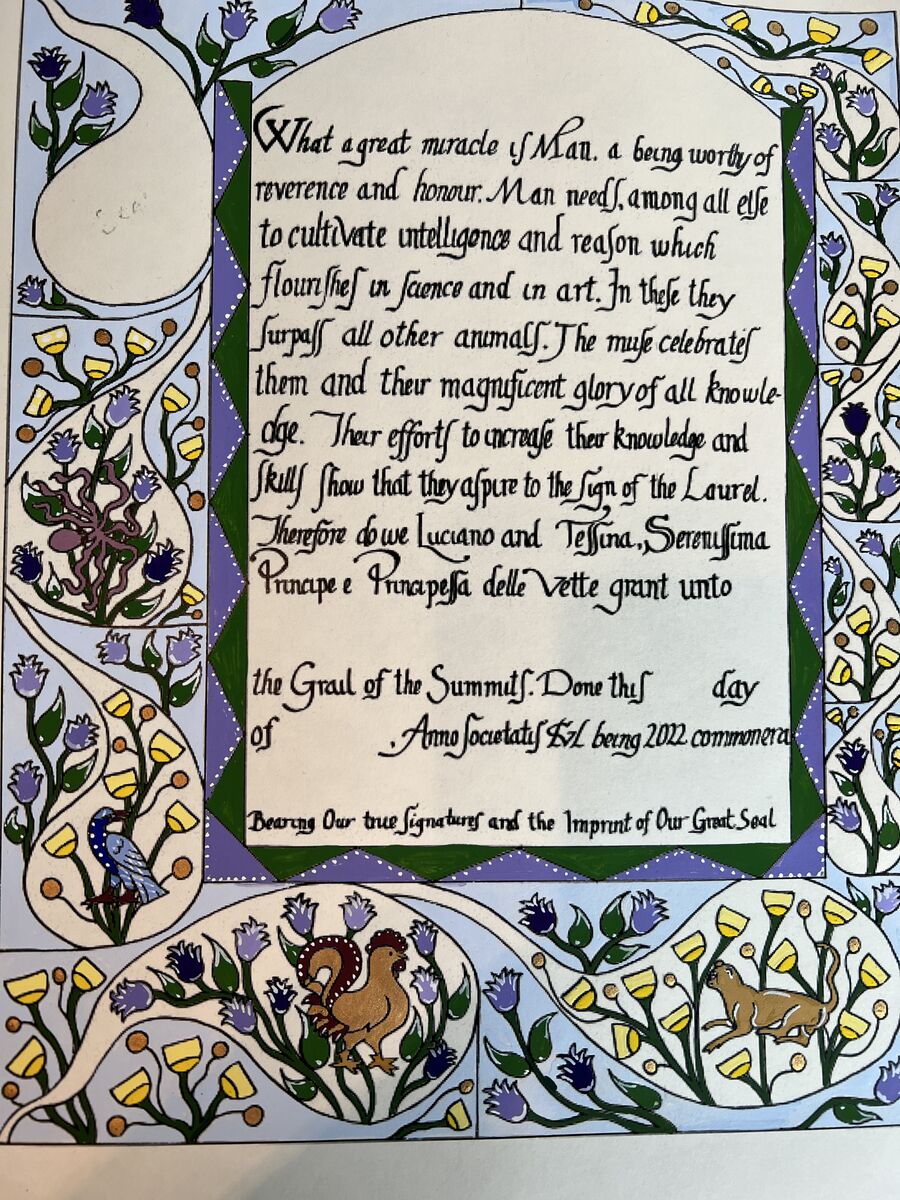 What a great miracle is Man. a being worthy of
reverence and honour. Man needs, among all else
to cultivate intelligence and reason which
flourishes in science and in art. In these they
surpass all other animals. The muse celebrates
them and their magnificent glory of all knowle-
dge. Their efforts to increase their knowledge and
skills show that they aspire to the sign of the Laurel.
Therefore do we Luciano and Tessina, Serenissima
Principe e Principessa delle Vette grant unto
the Grail of the Summits. Done this day
of , Anno Societatis being 2022 common era
Bearing Our true signatures and the Imprint of Our Great Seal